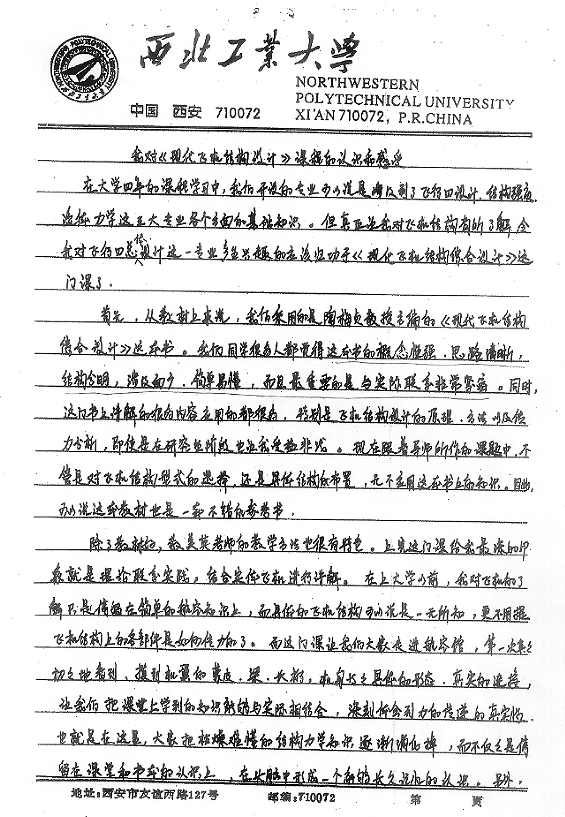 西北工业大学
NORTHWESTERN
POLYTECHNICAL UNIVERSITY
中国 西安 710072 XI'AN 710072, P.R.CHINA
我对《现代飞机结构设计》课程的认识和感受
在大学四年的课程学习中，我们开设的专业可以说是涉及到了飞行器设计、结构强度、
流体力学这三大专业各个方面的基础知识。但真正让我对飞机结构有所了解令
我对飞行器总体设计这一专业产生兴趣的应该归功于《现代飞机结构综合设计》这
门课了。
首先，从教材上来说，我们采用的是陶梅贞教授主编的《现代飞机结构
综合设计》这本书。我们同学很多人都觉得这本书的概念性强、思路清晰，
结构分明，涉及面广、简单易懂，而且最重要的是与实际联系非常紧密。同时，
这门书上讲解的很多内容应用的都很多，特别是飞机结构设计的原理、方法以及传
力分析，即使是在研究生阶段也让我受益非浅。现在跟着导师所作的课题中，不
管是对飞机结构型式的选择，还是具体结构的布置，无不应用这本书上的知识。因此，
可以说这本教材也是一本不错的参考书。
除了教材好，教员老师的教学方法也很有特色。上完这门课给我最深的印
象就是理论联系实践，结合实体飞机进行讲解。在上大学以前，我对飞机的了
解只是停留在简单的航空知识上，而具体的飞机结构可以说是一无所知，更不用提
飞机结构上的各部件是如何传力的了。而这门课让我们大家走进航空馆，第一次真真
切切地看到、摸到机翼的蒙皮、梁、长桁，机身 具体的形态、真实的连接，
让我们把课堂上学到的知识能够与实际相结合，深刻体会到力的传递的真实性。
也就是在这里，大家把枯燥难懂的结构力学知识逐渐消化掉，而不仅仅是停
留在课堂和书本的认识上，在头脑中形成一个能够长久 的认识。另外，
地址：西安市友谊西路127号 邮编：710072 第 页